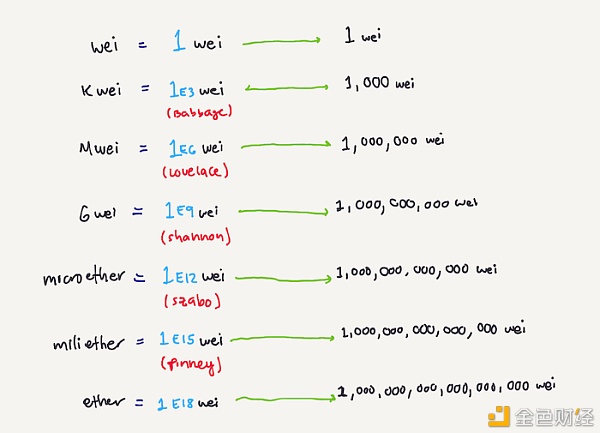 wei = 1 wei 1 wei
Kwei = 1E3 wei 1,000 wei
(Babbage)
Mwei = 1E6 wei 1,000,000 wei
(lovelace)
Gwei = 1E9 wei 1,000,000,000 wei
(shannon)
microether = 1E12 wei 1,000,000,000,000 wei
(szabo)
milliether = 1E15 wei 1,000,000,000,000,000 wei
(finney)
ether = 1E18 wei 1,000,000,000,000,000,000 wei
金色财经